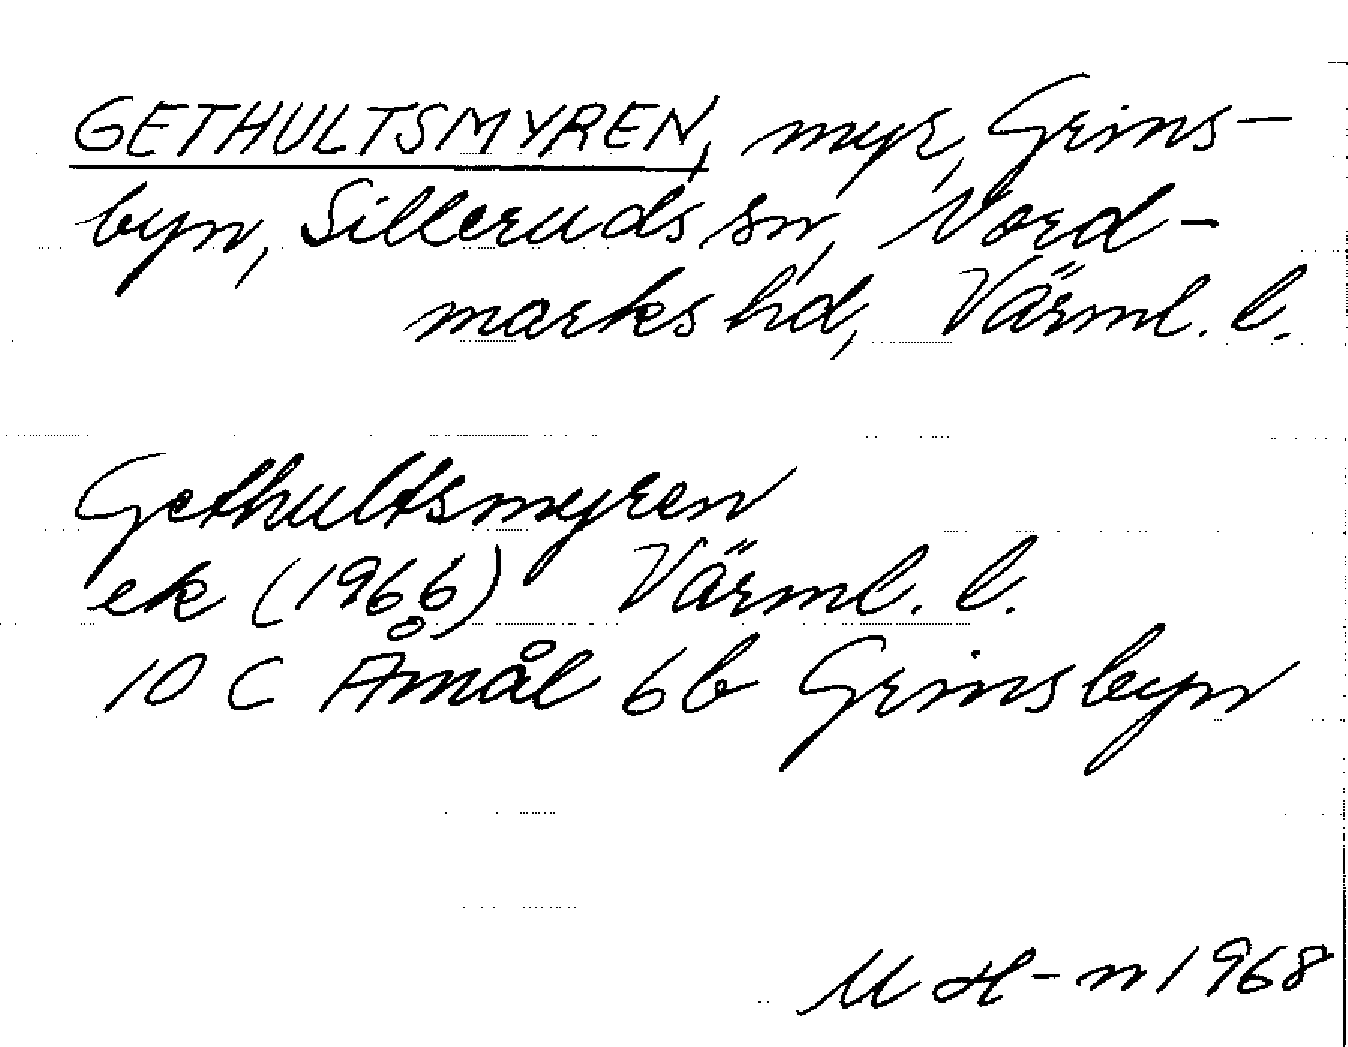 GETHULTSMYREN, myr, Grins-
byn, Silleruds sn, Nord-
marks hd, Värml. l.
Gethultsmyren
ek (1966) Värml. l.
10 C Åmål 6b Grinsbyn
M H-n 1968